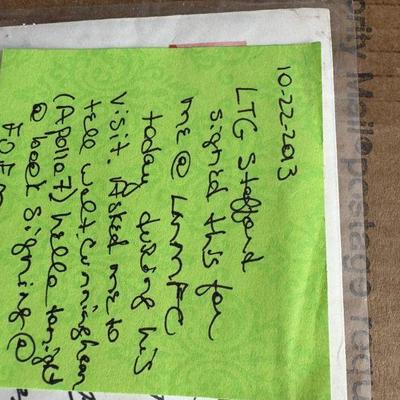 10-22-2013
LTG Stafford
signed this for
me @ LMMFC
today during his
visit. Asked me to
tell Walt Cunningham
(Apollo 7) hello tonight
@ book signing @
Mail®postage requ